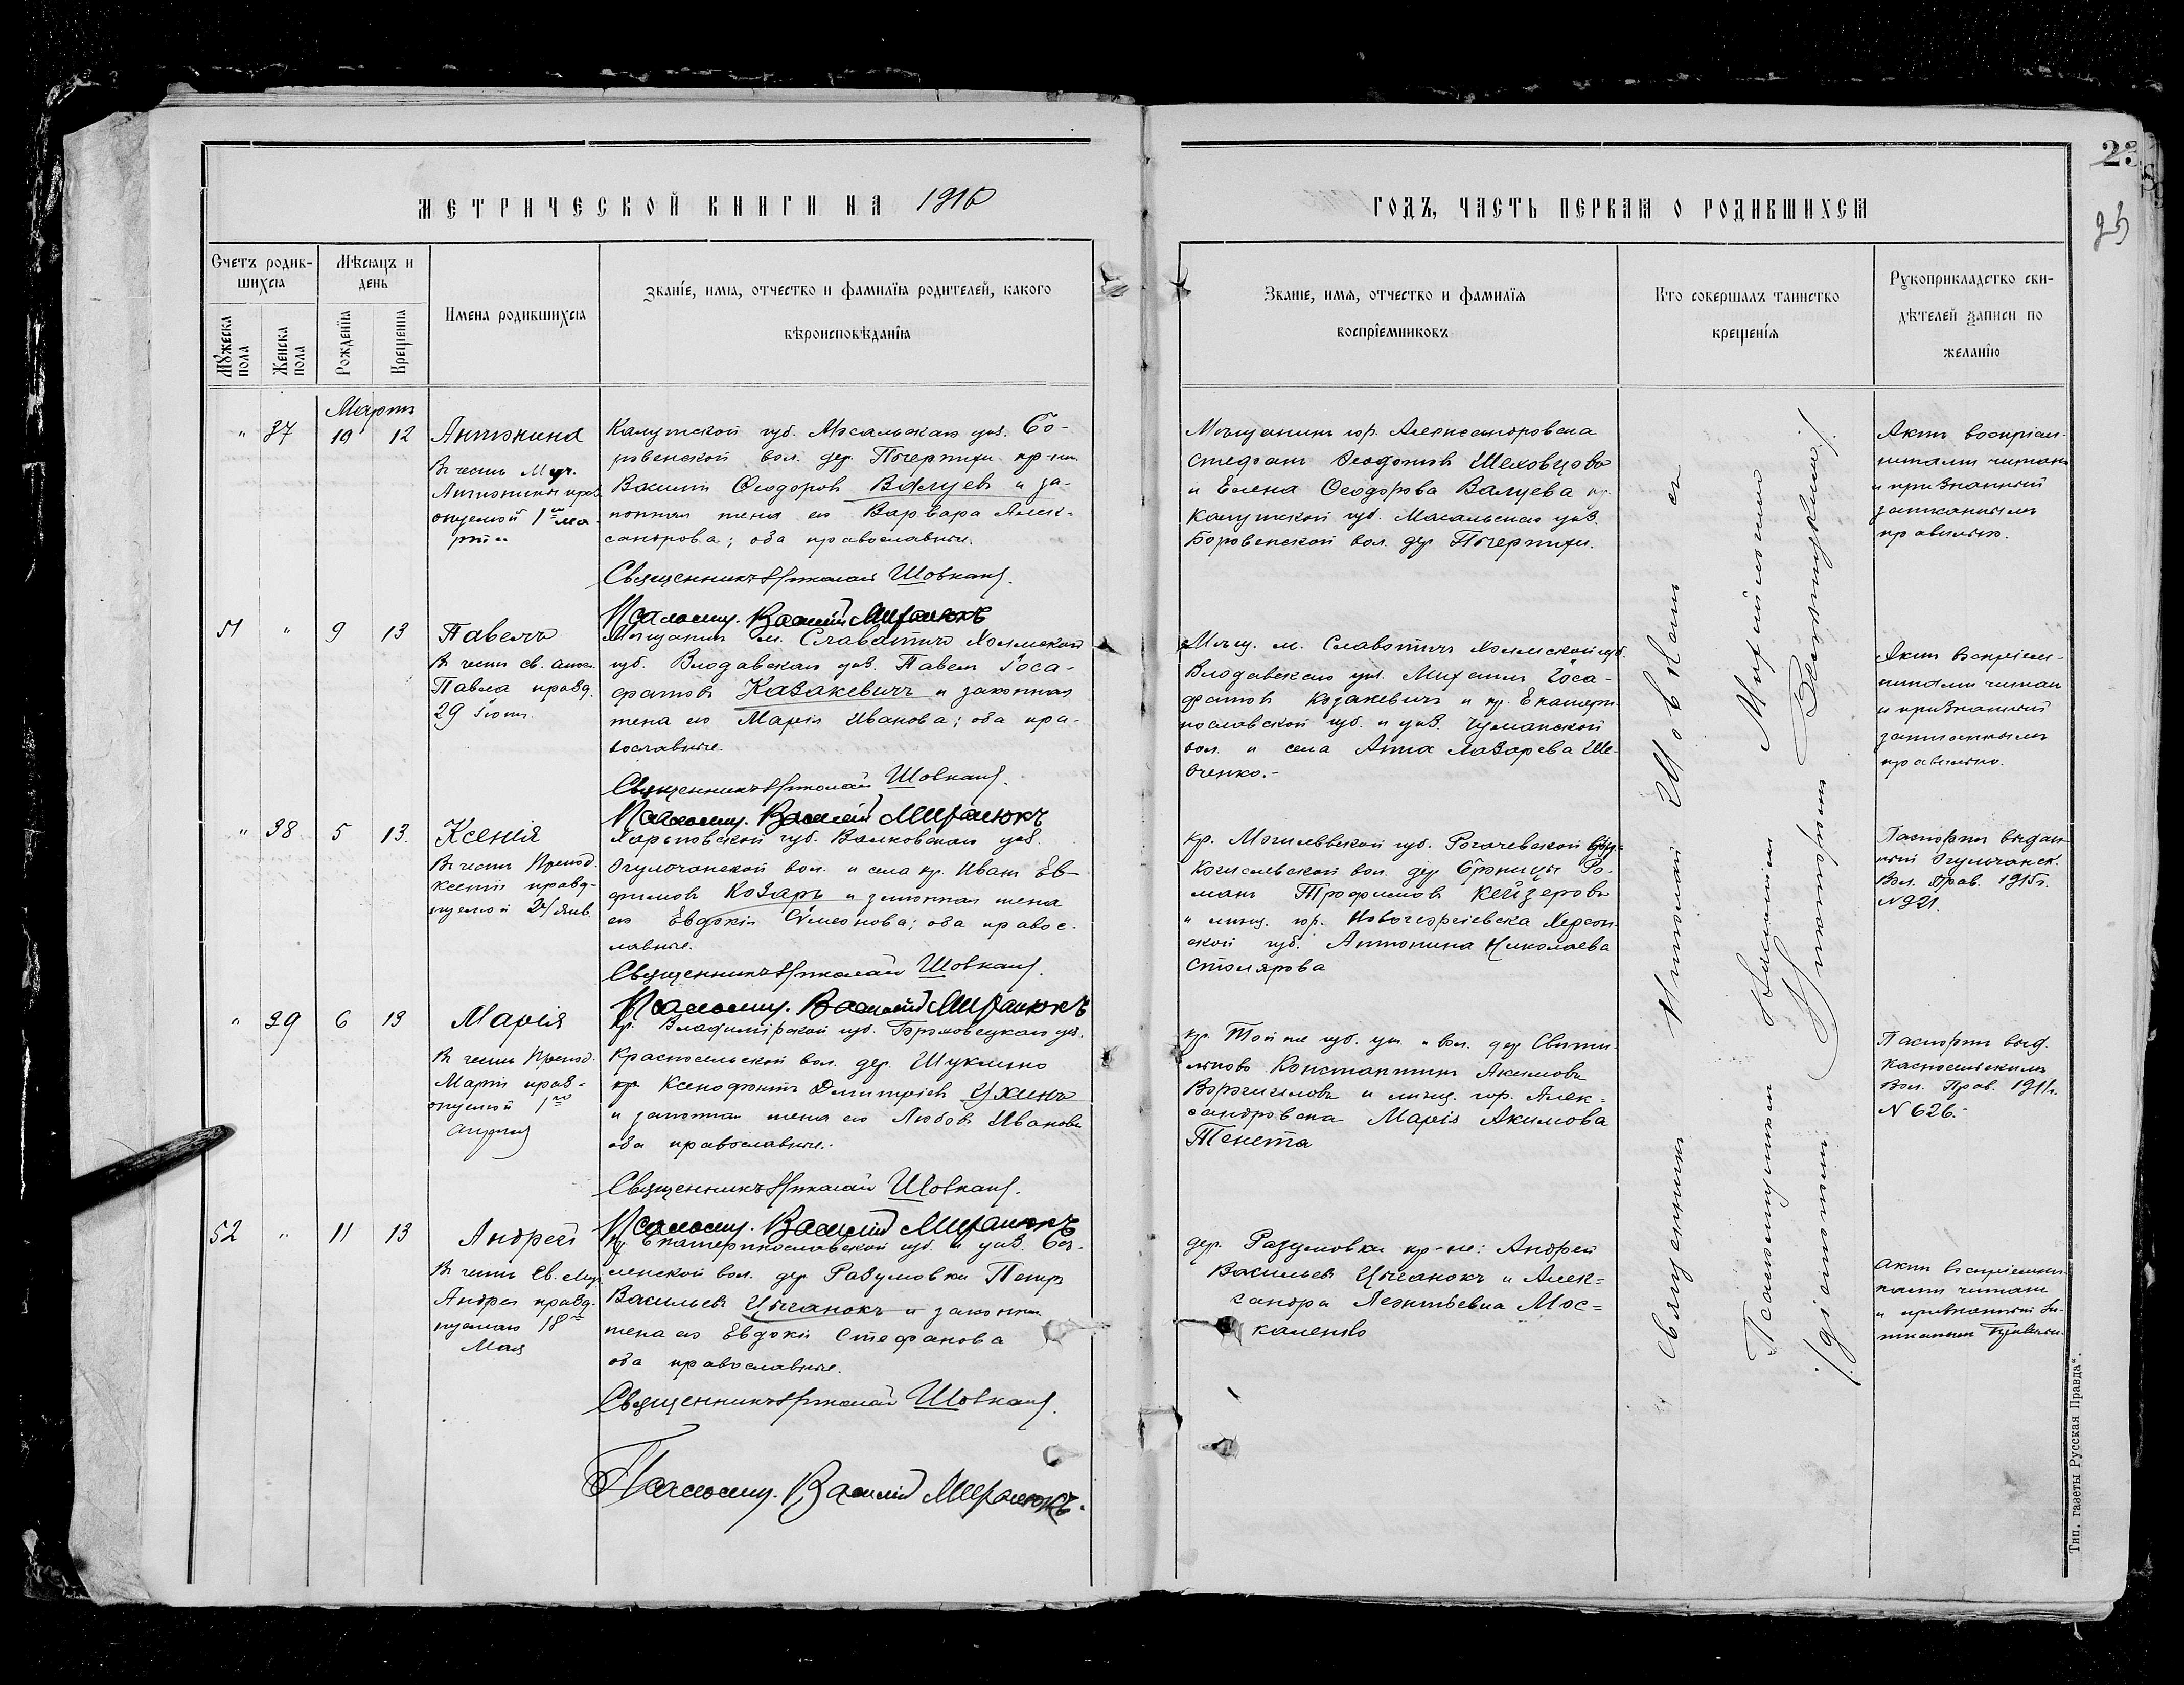 МЕТРИЧЕСКОЙ КНИГИ НА 1916
ГОДЪ, ЧАСТЬ ПЕРВАЯ О РОДИВШИХСЯ
23
Счетъ родив-
шихся
Мужеска пола
Женска пола
Мѣсяцъ и
день
Рожденїя
Крещенїя
Имена родившихся
Званїе, имя, отчество и фамилїя родителей, какого
вѣроисповѣданїя
Званїе, имя, отчество и фамилїя
воспрїемниковъ
Кто совершалъ таинство
крещенїя
Рукоприкладство сви-
дѣтелей записи по
желанїю
Мартъ
" 37 10 12 Антонина
Въ честь Муч.
Антонины праз
днуемой 1го ма
рта
Калужской губ. Мосальскаго уѣз. Бо-
ровенской вол. дер. кр-нъ
Василій Ѳеодоровъ Валуевъ и за-
конная жена его Варвара Алек-
сандрова; оба православные.
Священникъ Николай Шовкань.
Псаломщ. Василій Михалюкъ
Мѣщанинъ гор. Александровска
Стефанъ Ѳеодотовъ Шеховцовъ
и Елена Ѳеодорова Валуева кр.
Калужской губ. Масальскаго уѣз.
Боровенской вол. дер.
Актъ воспріем-
никами читанъ
и признанный
записаннымъ
правильно.
51 " 9 13 Павелъ
Въ честь св. апос.
Павла празд.
29 Іюня.
Мѣщанинъ м. Славатичъ Холмской
губ. Влодавскаго уѣз. Павелъ Іоса-
фатовъ Казакевичъ и законная
жена его Марія Иванова; оба пра-
вославные.
Священникъ Николай Шовкань.
Псаломщ. Василій Михалюкъ
Мѣщ. м. Славотичъ Холмской губ.
Влодавскаго уѣз. Михаилъ Іоса-
фатовъ Козакевичъ и кр. Екатери-
нославской губ. и уѣз. Чумакской
вол. и села Анна Лазарева Ше-
вченко.-
Актъ воспріем-
никами читан
и признанный
записаннымъ
правильно.
" 38 5 13. Ксенія
Въ честь Препод.
Ксеніи празд-
нуемой 24 Янв.
Харьковской губ. Валковскаго уѣз.
Огульчанской вол. и села кр. Иванъ Ев-
фимовъ Козарь и законная жена
его Евдокія Симеонова; оба правос-
лавные.
Священникъ Николай Шовкань.
Псаломщ. Василій Михалюкъ
кр. Могилевской губ. Рогачевской
вол. дер. Ро-
манъ Трофимовъ Кейзеровъ
и мѣщ. гор. Новогеоргіевска Херсон-
ской губ. Антонина Николаева
Столярова
Паспортъ выдан-
ный Огульчанск.
Вол. Прав. 1915г.
№921.
" 39 6 13 Марія
Въ честь Препод.
Маріи праз-
днуемой 1го
апрѣля
Кр. Владимірской губ. Гороховецкаго уѣз.
Красносельской вол. дер. Шуклино
кр. Ксенофонтъ Дмитріевъ
и законная жена его Любовь Иванова
оба православные.
Священникъ Николай Шовкань.
Псаломщ. Василій Михалюкъ
кр. Той же губ. уѣз. и вол. дер.
Константинъ Акимовъ
и мѣщ. гор. Алек-
сандровска Марія Акимова
Тенета
Паспортъ выд.
Вол. Прав. 1911г.
№ 626.
52 " 11 13 Андрей
Въ честь Св. Муч.
Андрея празд.
нуемаго 18го
Мая
Кр. Екатеринославской губ. и уѣз. Бѣ-
ленской вол. дер. Разумовки Петръ
Васильевъ Цыганокъ и законная
жена его Евдокія Стефанова
оба православные.
Священникъ Николай Шовкань.
Псаломщ. Василій Михалюкъ.
дер. Разумовки кр-не: Андрей
Васильевъ Цыганокъ и Алек=
сандра Леонтьевна Мос=
каленко
Актъ воспріемни-
ками читанъ
и признанный за-
писаннымъ правильн.
Священникъ Николай Шовкань съ
Псаломщикомъ Василіемъ Михалюкомъ
Тип. газеты „Русская Правда“.